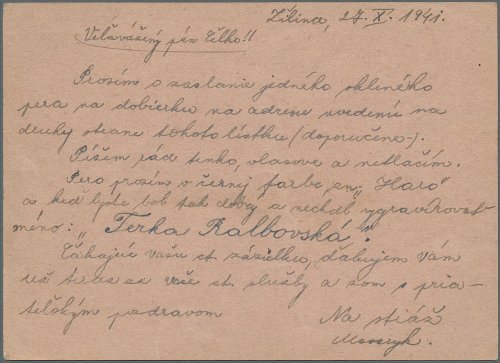 Žilina, 27. X. 1941.
Veľavážený pán Čilko!!
Prosím o zaslanie jedného skleného
pera na dobierku na adresu uvedenú na
druhej strane tohoto lístku (doporučene-).
Píšem rád tenko, vlasove a netlačím.
Pero prosím v čiernej farbe zn. „Haro"
a keď byste bol tak dobrý a nechal vygravírovať
méno: „Terka Ralbovská".
Čakajúc vašu ct. zásielku, ďakujem Vám
už teraz za vaše ct. služby a som s pria-
teľským pozdravom
Na stráž